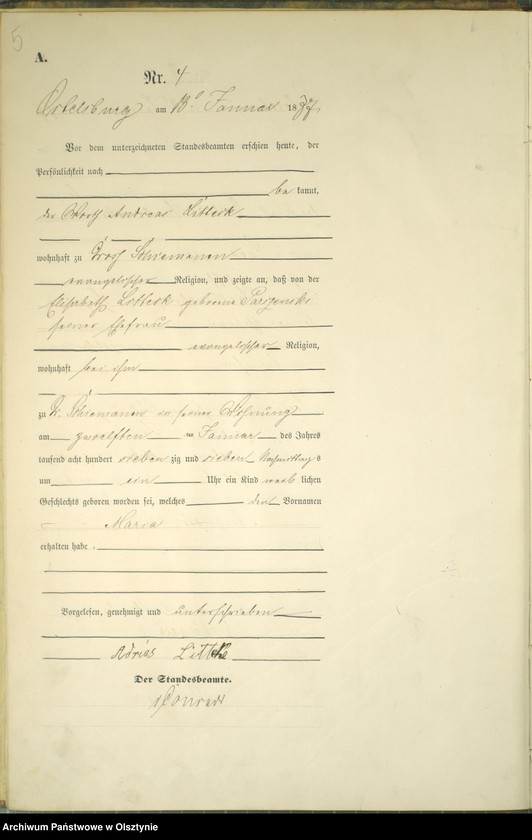 5
A.
Nr. 4
Ortelsburg am 13t Januar 1877
Vor dem unterzeichneten Standesbeamten erschien heute, der
Persönlichkeit nach
be kannt,
der Andreas
wohnhaft zu Groß Schiemanen
evangelischer Religion, und zeigte an, daß von der
Elisabeth geborene
seiner Ehefrau
evangelischer Religion,
wohnhaft bei ihm
zu Gr. Schiemanen in seiner Wohnung
am zwoelften Januar des Jahres
tausend acht hundert sieben zig und sieben Nachmittags
um ein Uhr ein Kind weib lichen
Geschlechts geboren worden sei, welches den Vornamen
Maria
erhalten habe.
Vorgelesen, genehmigt und unterschrieben
Der Standesbeamte.
Conrad
Archiwum Państwowe w Olsztynie